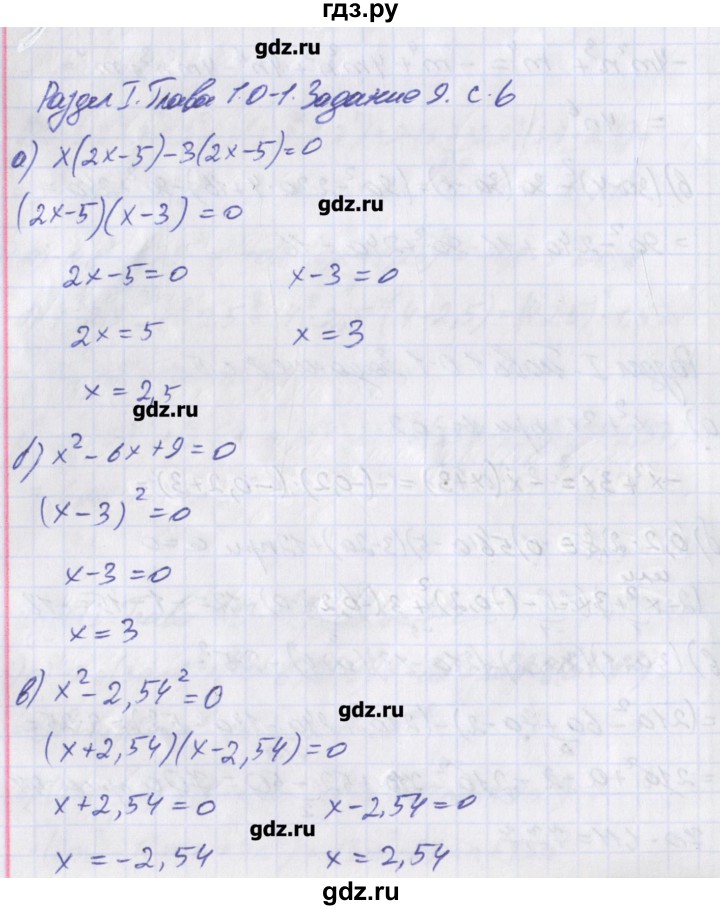 гдз.ру
gdz.ru
Раздел I. Глава 1. О-1. Задание 9. с. 6
а) x(2x-5)-3(2x-5)=0
(2x-5)(x-3)=0
gdz.ru
2x-5=0 x-3=0
2x=5 x=3
x=2,5
gdz.ru
б) x²-6x+9=0
(x-3)²=0
x-3=0
x=3
в) x²-2,54²=0
gdz.ru
(x+2,54)(x-2,54)=0
x+2,54=0 x-2,54=0
gdz.ru
x=-2,54 x=2,54
gdz.ru